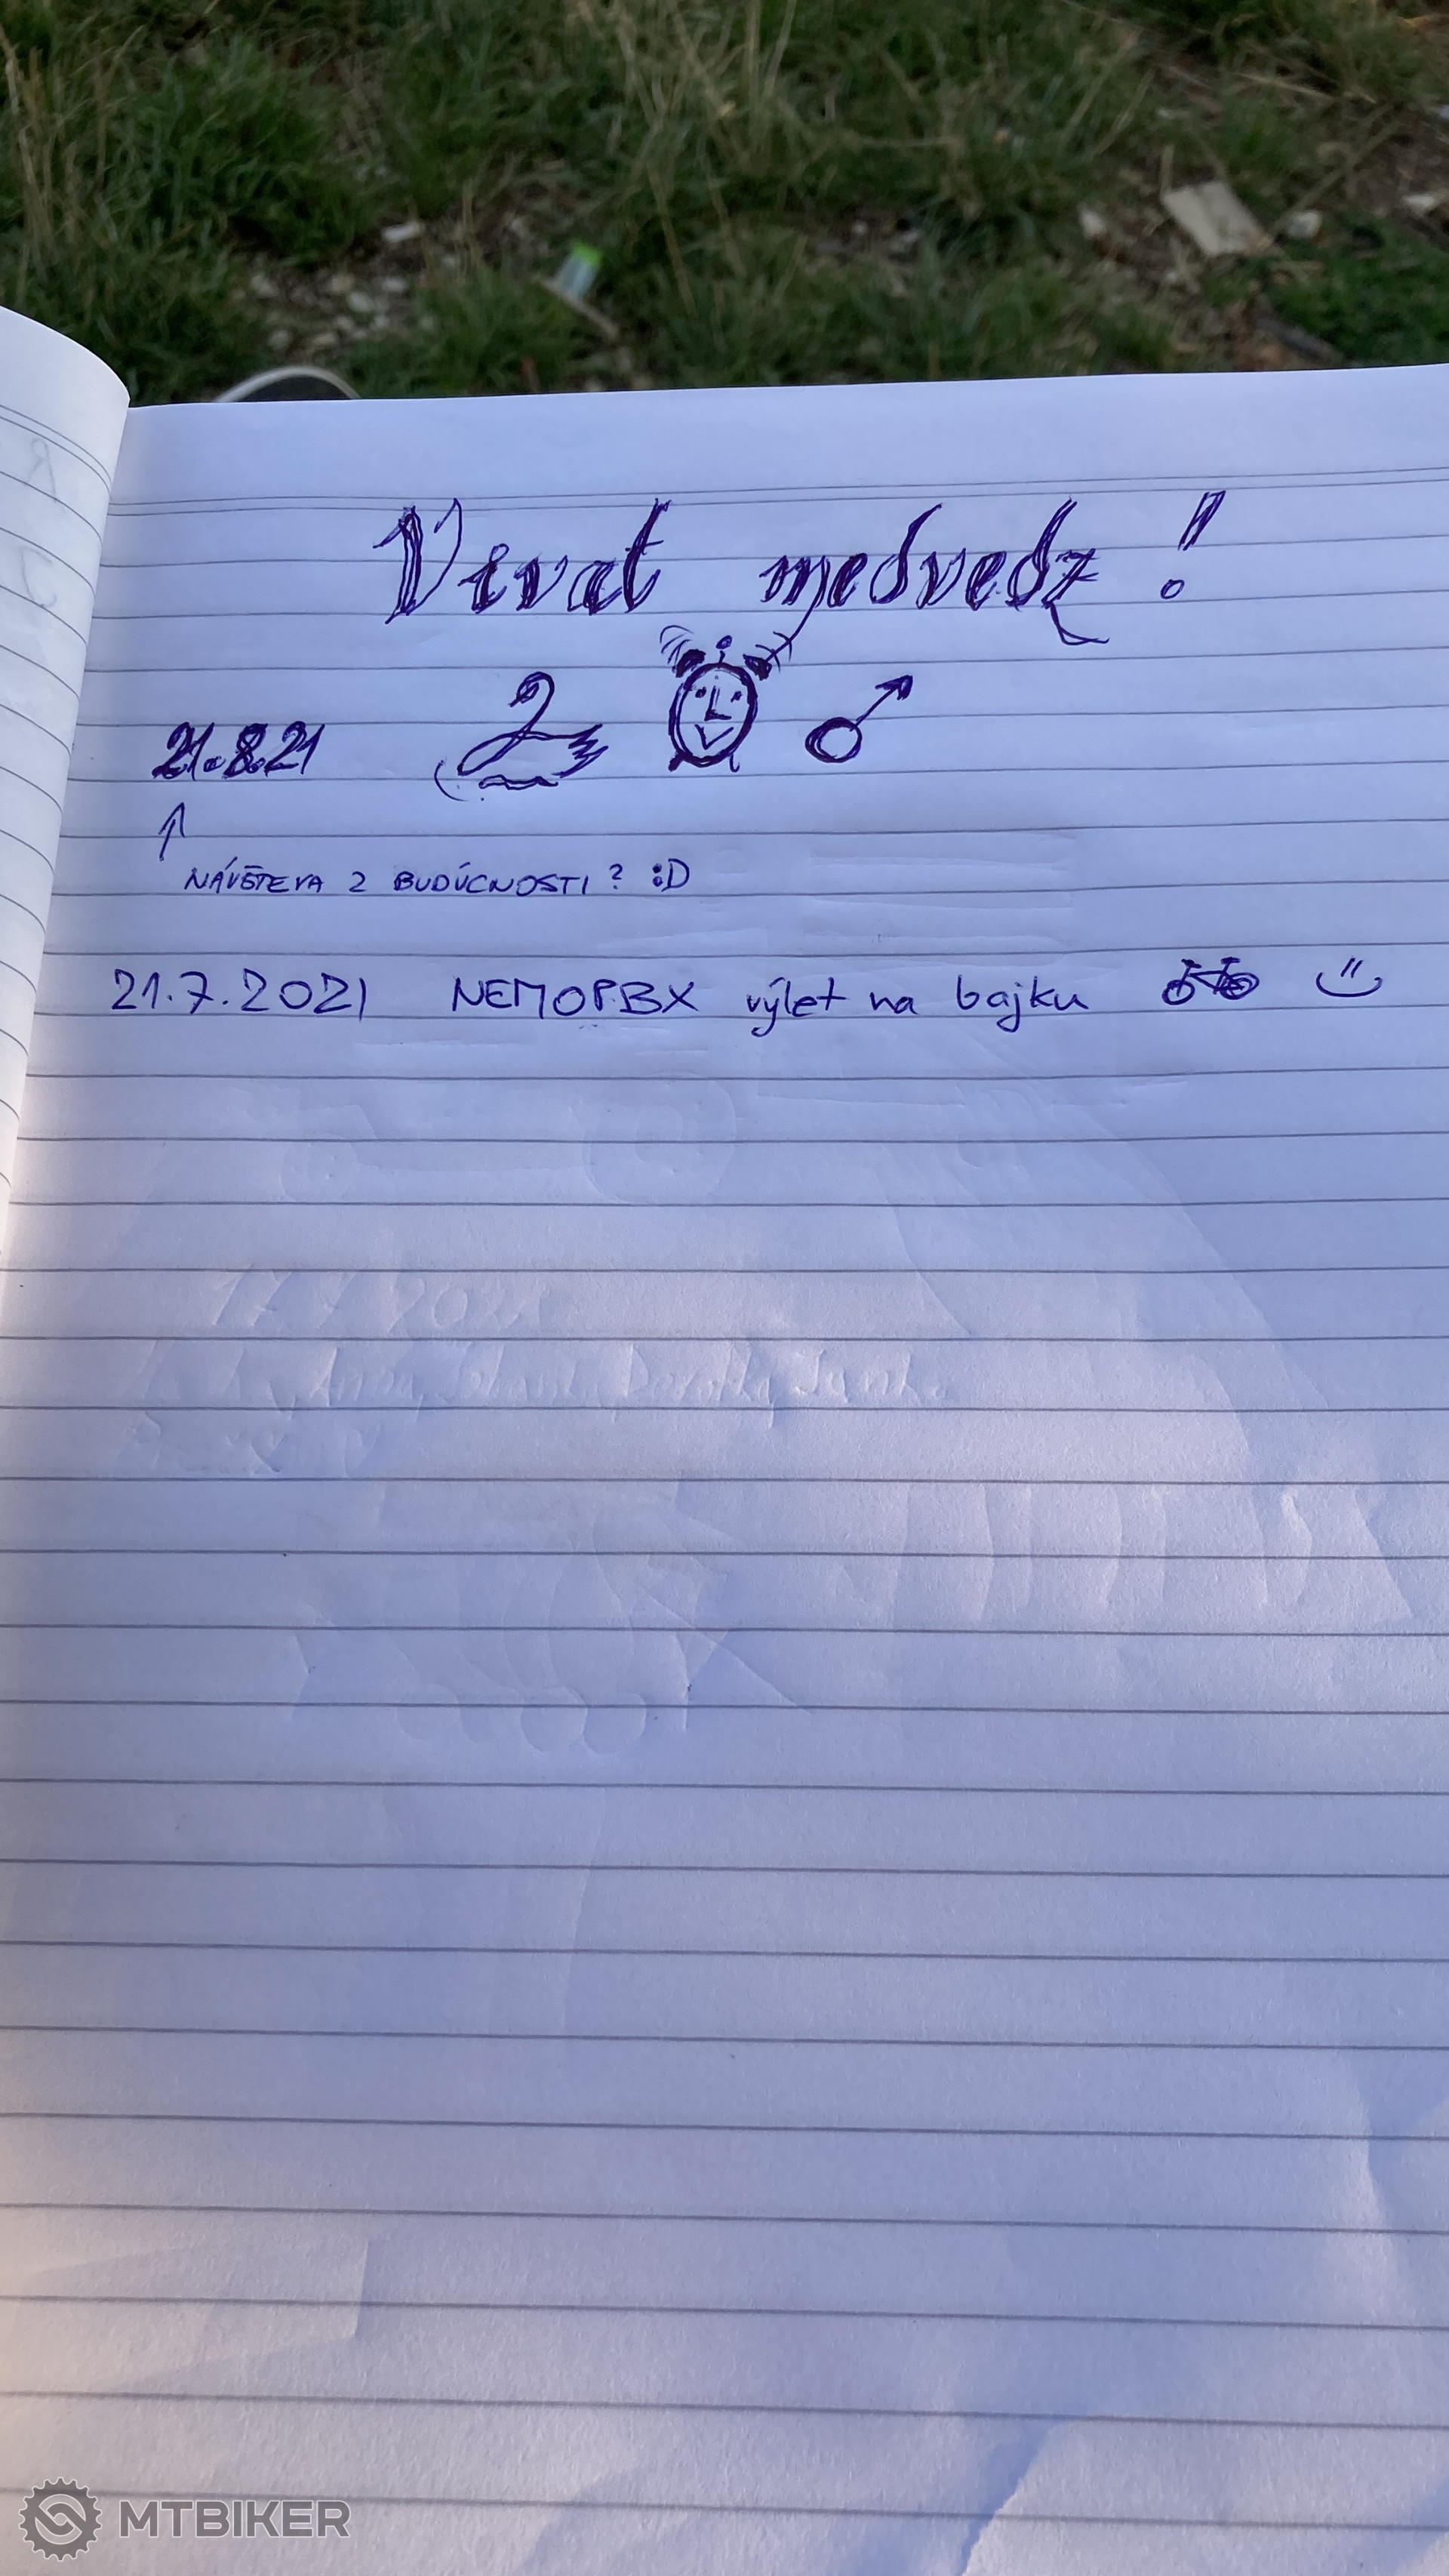 Vivat medveďz!
21.8.21
NÁVŠTEVA Z BUDÚCNOSTI? :D
21.7.2021 NEMOPBX výlet na bajku
MTBIKER